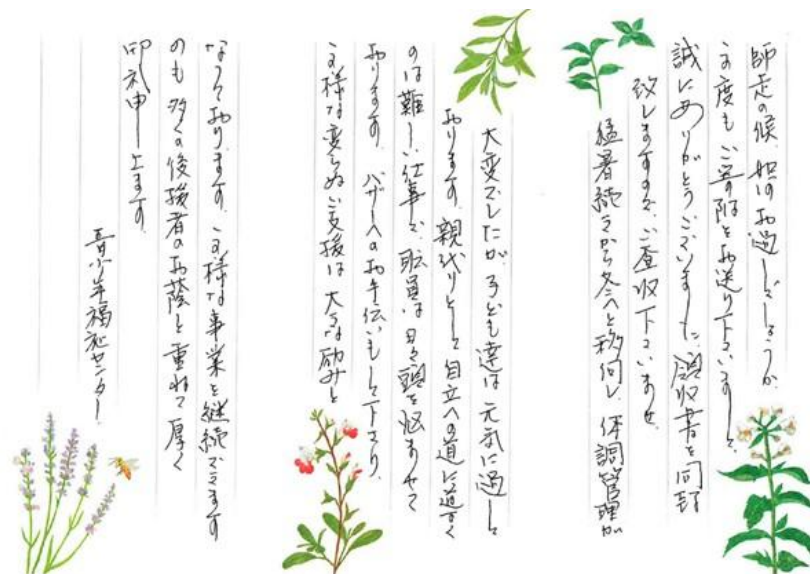 師走の候、如何お過しでしょうか。
この度もご寄附をお送り下さいまして
誠にありがとうございました。領収書を同封
致しますので、ご査収下さいませ。
猛暑続きから冬へと移行し、体調管理が
大変でしたが、子ども達は元気に過して
おります。親代りとして自立への道に導く
のは難しい仕事で、職員は日々頭を悩ませて
おります。バザーへのお手伝いもして下さり、
この様な変らぬご支援は大きな励みと
なっております。この様な事業を継続できます
のも多くの後援者のお蔭と重ねて厚く
御礼申し上ます。
青少年福祉センター